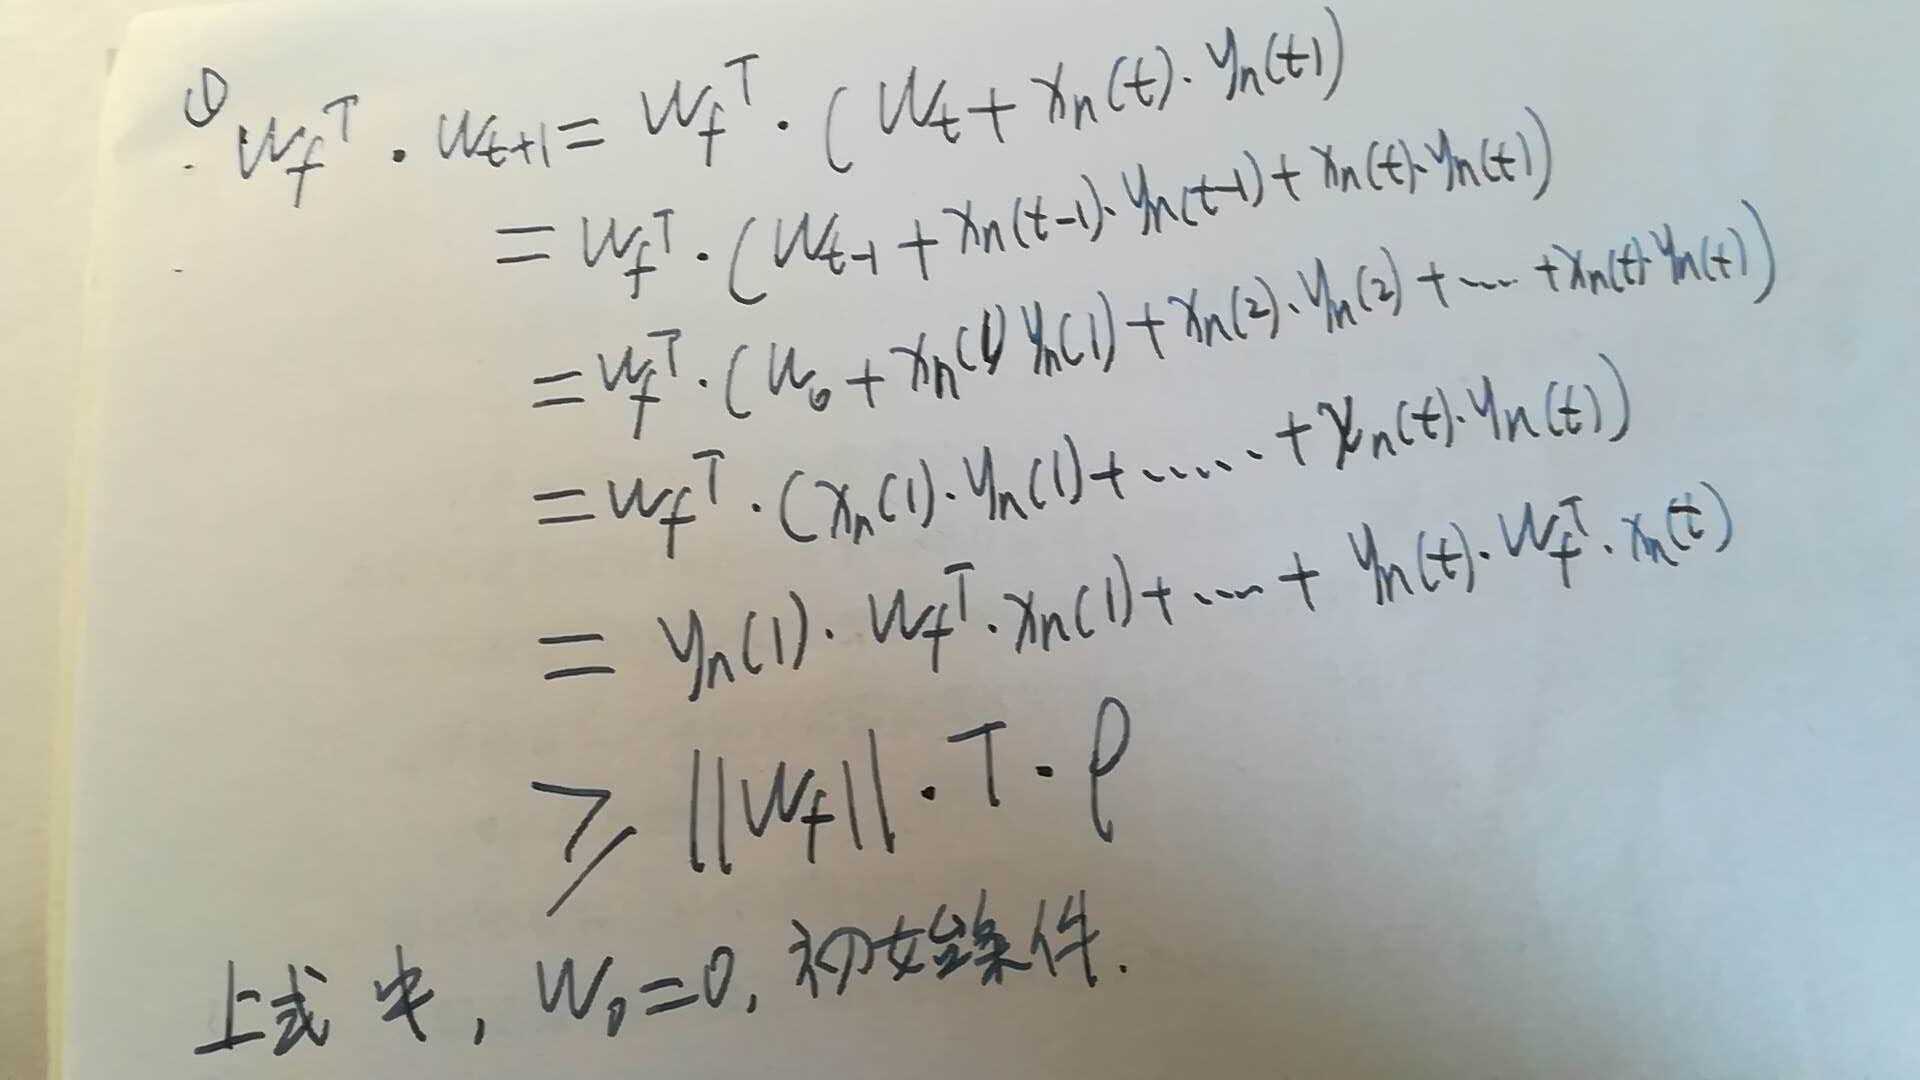 ① W_f^T · W_{t+1} = W_f^T · ( W_t + x_n(t) · y_n(t) )
= W_f^T · ( W_{t-1} + x_n(t-1) · y_n(t-1) + x_n(t) · y_n(t) )
= W_f^T · ( W_0 + x_n(1) y_n(1) + x_n(2) · y_n(2) + ... + x_n(t) · y_n(t) )
= W_f^T · ( x_n(1) · y_n(1) + ...... + x_n(t) · y_n(t) )
= y_n(1) · W_f^T · x_n(1) + ... + y_n(t) · W_f^T · x_n(t)
≥ ||W_f|| · T · ρ
上式中, W_0 = 0, 初始条件.